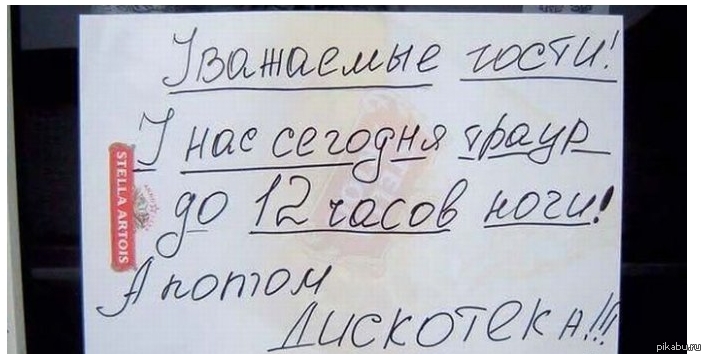 Уважаемые гости!
У нас сегодня траур
до 12 часов ночи!
А потом
Дискотека!!!
STELLA ARTOIS
pikabu.ru